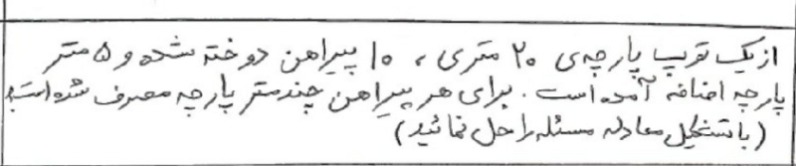 از یک توپ پارچه‌ی ۲۰ متری ، ۱۰ پیراهن دوخته شده و ۵ متر
پارچه اضافه آمده است . برای هر پیراهن چند متر پارچه مصرف شده است؟
(با تشکیل معادله مسئله را حل نمائید)